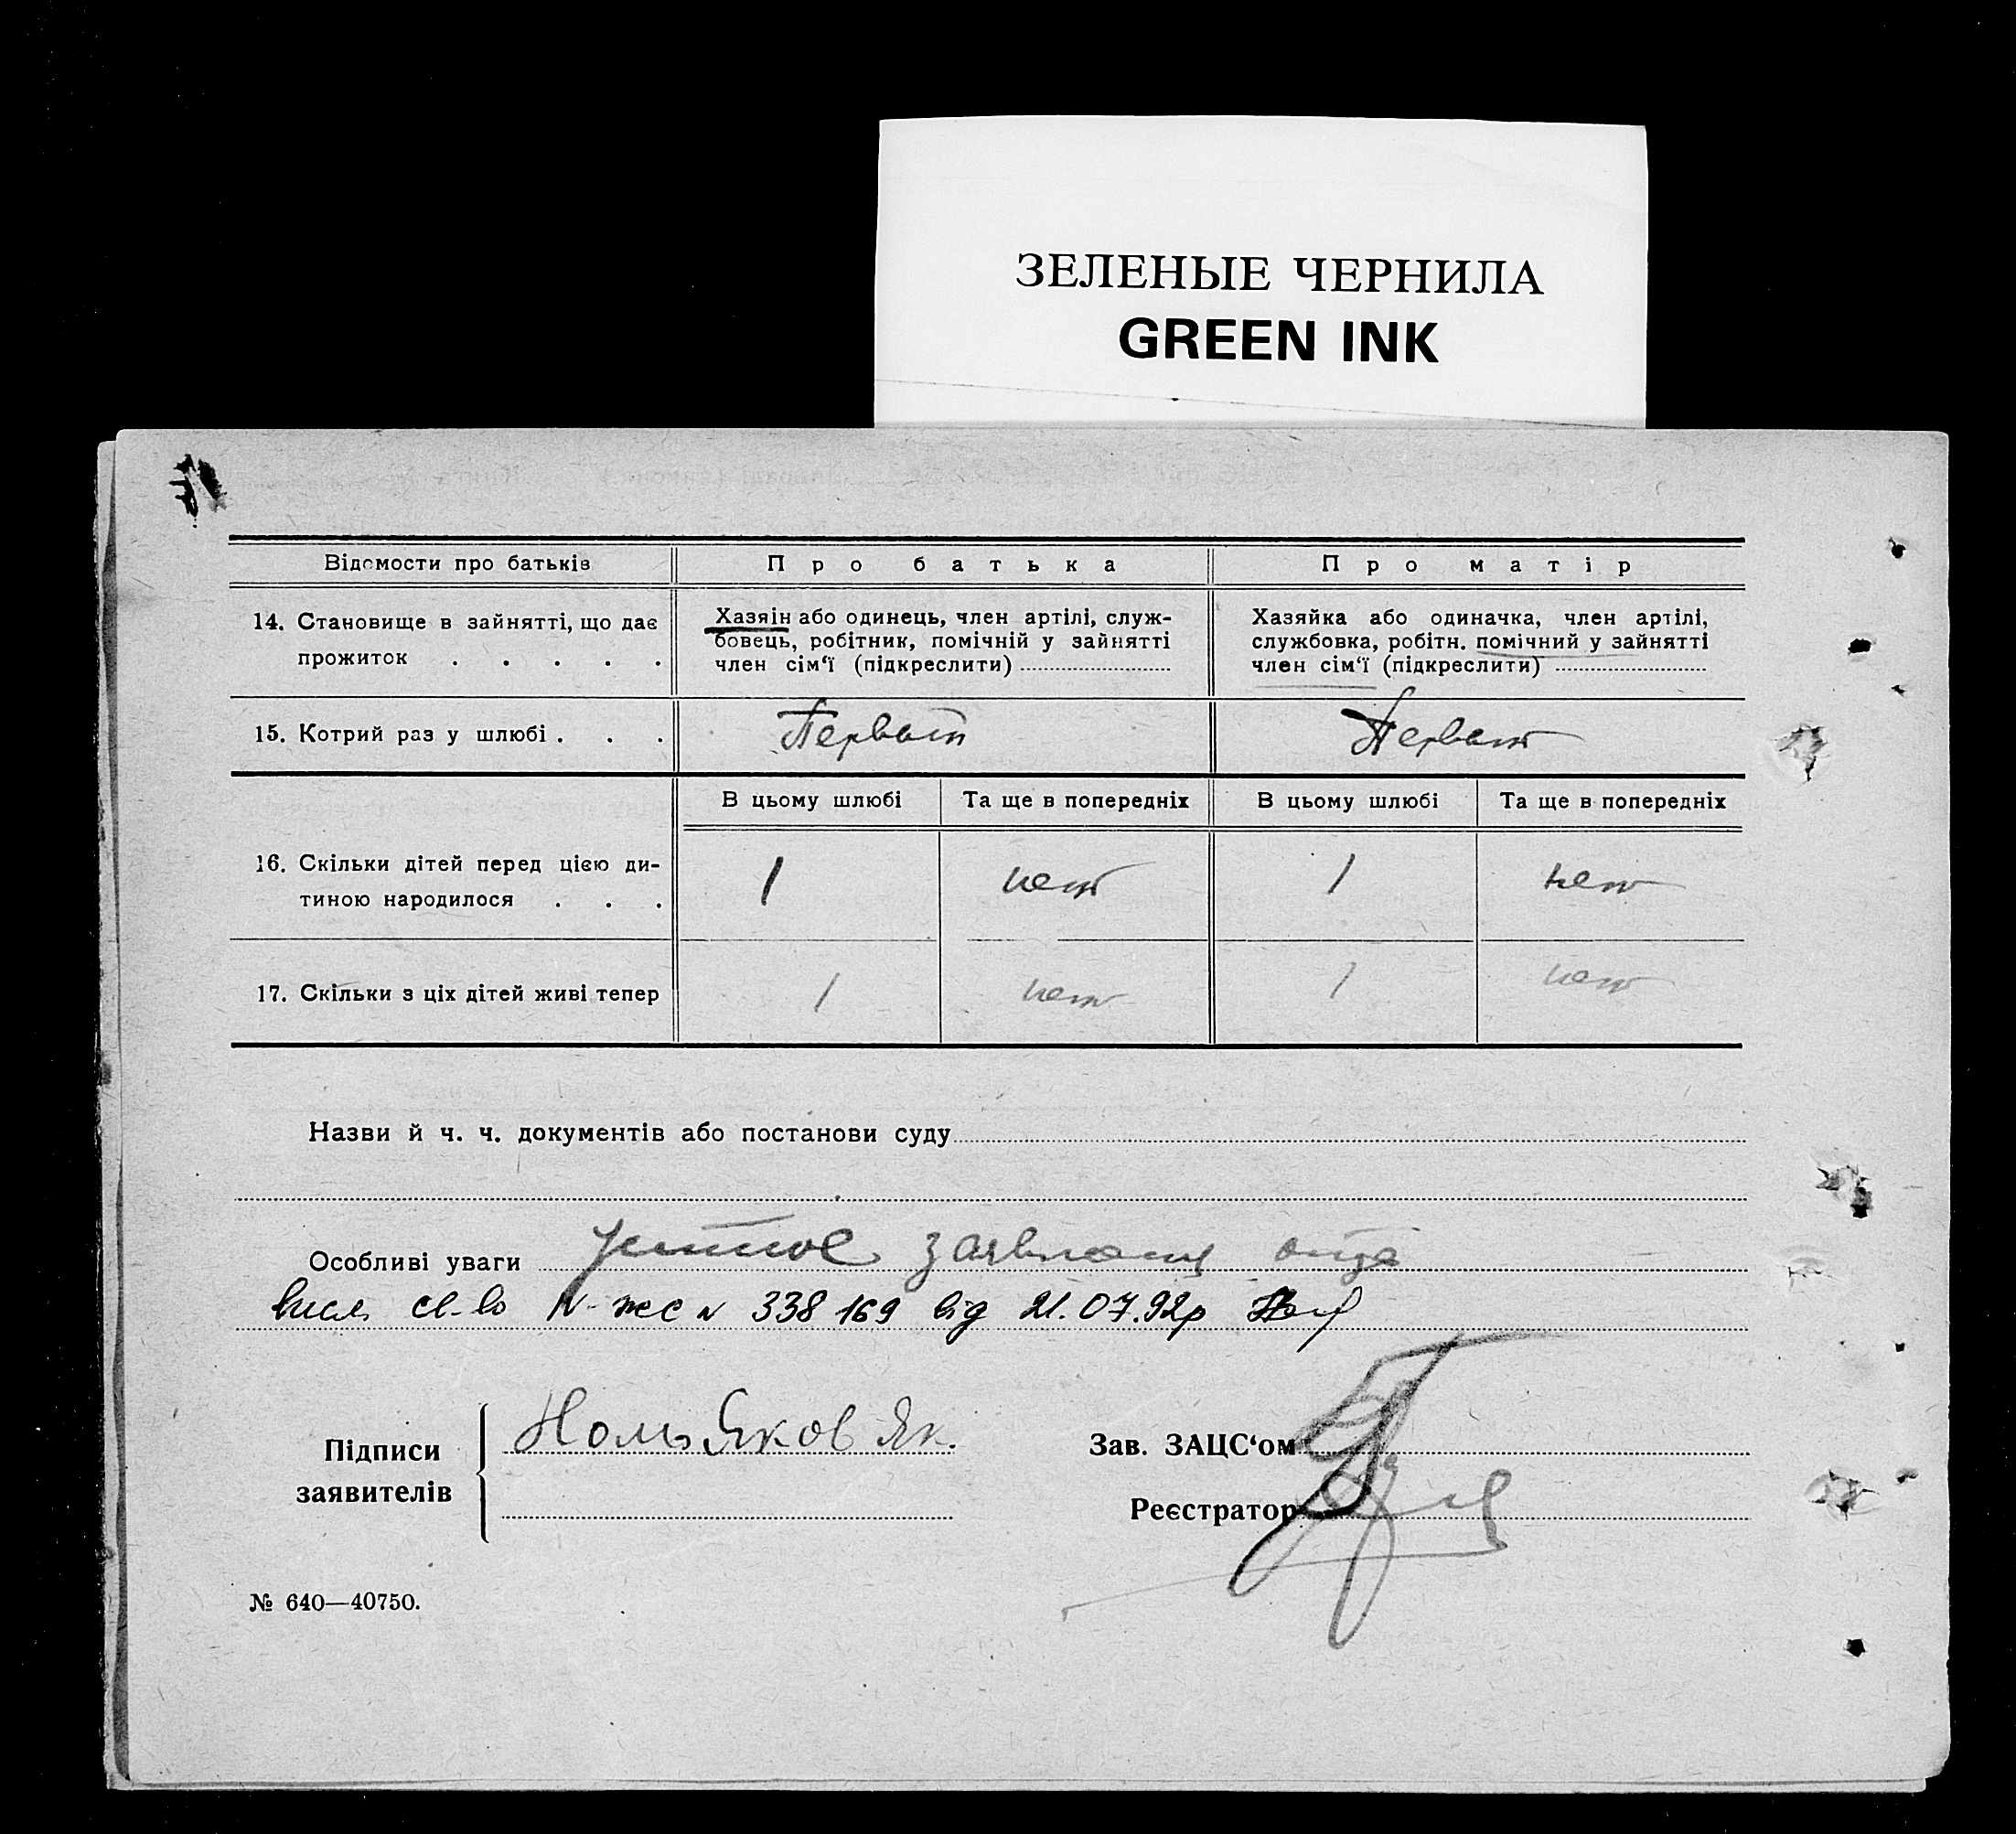 ЗЕЛЕНЫЕ ЧЕРНИЛА
GREEN INK
Відомости про батьків
Про батька
Про матір
14. Становище в зайнятті, що дає
прожиток . . . . .
Хазяін або одинець, член артілі, служ-
бовець, робітник, помічній у зайнятті
член сім‘ї (підкреслити)
Хазяйка або одиначка, член артілі,
службовка, робітн. помічний у зайнятті
член сім‘ї (підкреслити)
15. Котрий раз у шлюбі . . .
Первый
Первый
В цьому шлюбі
Та ще в попередніх
В цьому шлюбі
Та ще в попередніх
16. Скільки дітей перед цією ди-
тиною народилося . . .
1
нет
1
нет
17. Скільки з ціх дітей живі тепер
1
нет
1
нет
Назви й ч. ч. документів або постанови суду
Особливі уваги
заявление отца
св-во 338 169 від 21.07.92р
Підписи
заявителів
Яков Як.
Зав. ЗАЦС‘ом
Реєстратор
№ 640—40750.